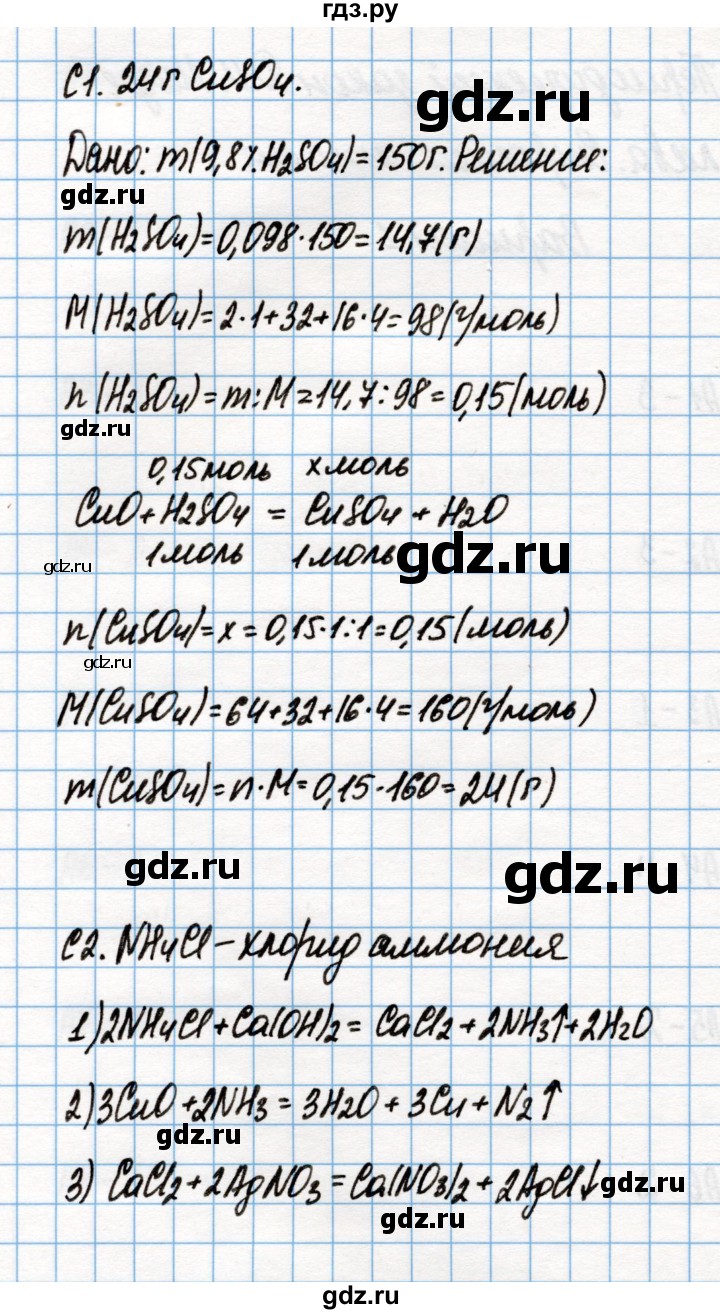 гдз.ру
С1. 24г CuSO4.
gdz.ru
Дано: m(9,8%.H2SO4)=150г. Решение:
gdz.ru
m(H2SO4)=0,098·150=14,7(г)
M(H2SO4)=2·1+32+16·4=98(г/моль)
n(H2SO4)=m:M=14,7:98=0,15(моль)
gdz.ru
0,15моль хмоль
CuO+H2SO4 = CuSO4 + H2O
1моль 1моль
gdz.ru
gdz.ru
n(CuSO4)=x=0,15·1:1=0,15(моль)
gdz.ru
M(CuSO4)=64+32+16·4=160(г/моль)
m(CuSO4)=n·M=0,15·160=24(г)
gdz.ru
gdz.ru
С2. NH4Cl-хлорид аммония
1)2NH4Cl+Ca(OH)2= CaCl2+2NH3↑+2H2O
2)3CuO+2NH3= 3H2O+3Cu+N2↑
gdz.ru
3) CaCl2+2AgNO3=Ca(NO3)2+2AgCl↓
gdz.ru
gdz.ru
gdz.ru